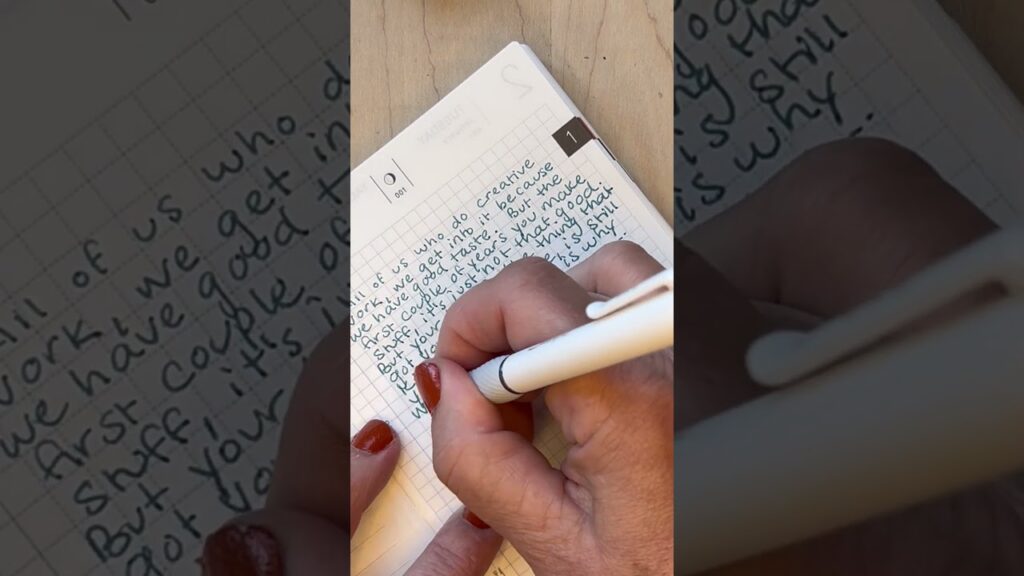 1
001
All of us who do creative
work, we get into it because
we have good taste. But the
first couple of years you make
stuff, it's just not that good.
But your thing that
got is still
is why